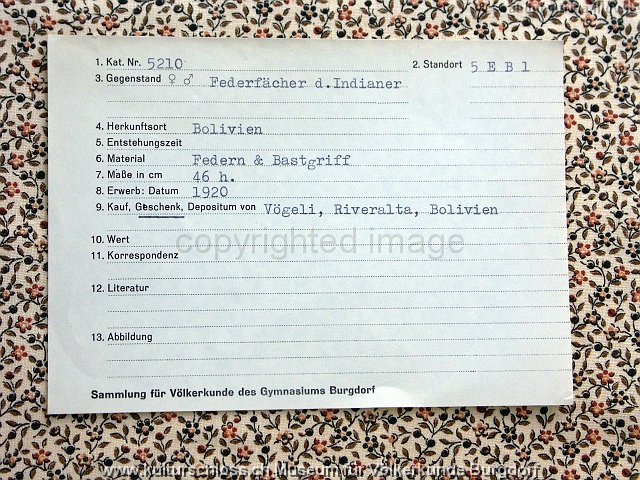 1. Kat. Nr. 5210 2. Standort 5 E B 1
3. Gegenstand ♀ ♂ Federfächer d.Indianer
4. Herkunftsort Bolivien
5. Entstehungszeit
6. Material Federn & Bastgriff
7. Maße in cm 46 h.
8. Erwerb: Datum 1920
9. Kauf, Geschenk, Depositum von Vögeli, Riveralta, Bolivien
10. Wert
copyrighted image
11. Korrespondenz
12. Literatur
13. Abbildung
Sammlung für Völkerkunde des Gymnasiums Burgdorf
www.kulturschloss.ch Museum für Völkerkunde Burgdorf